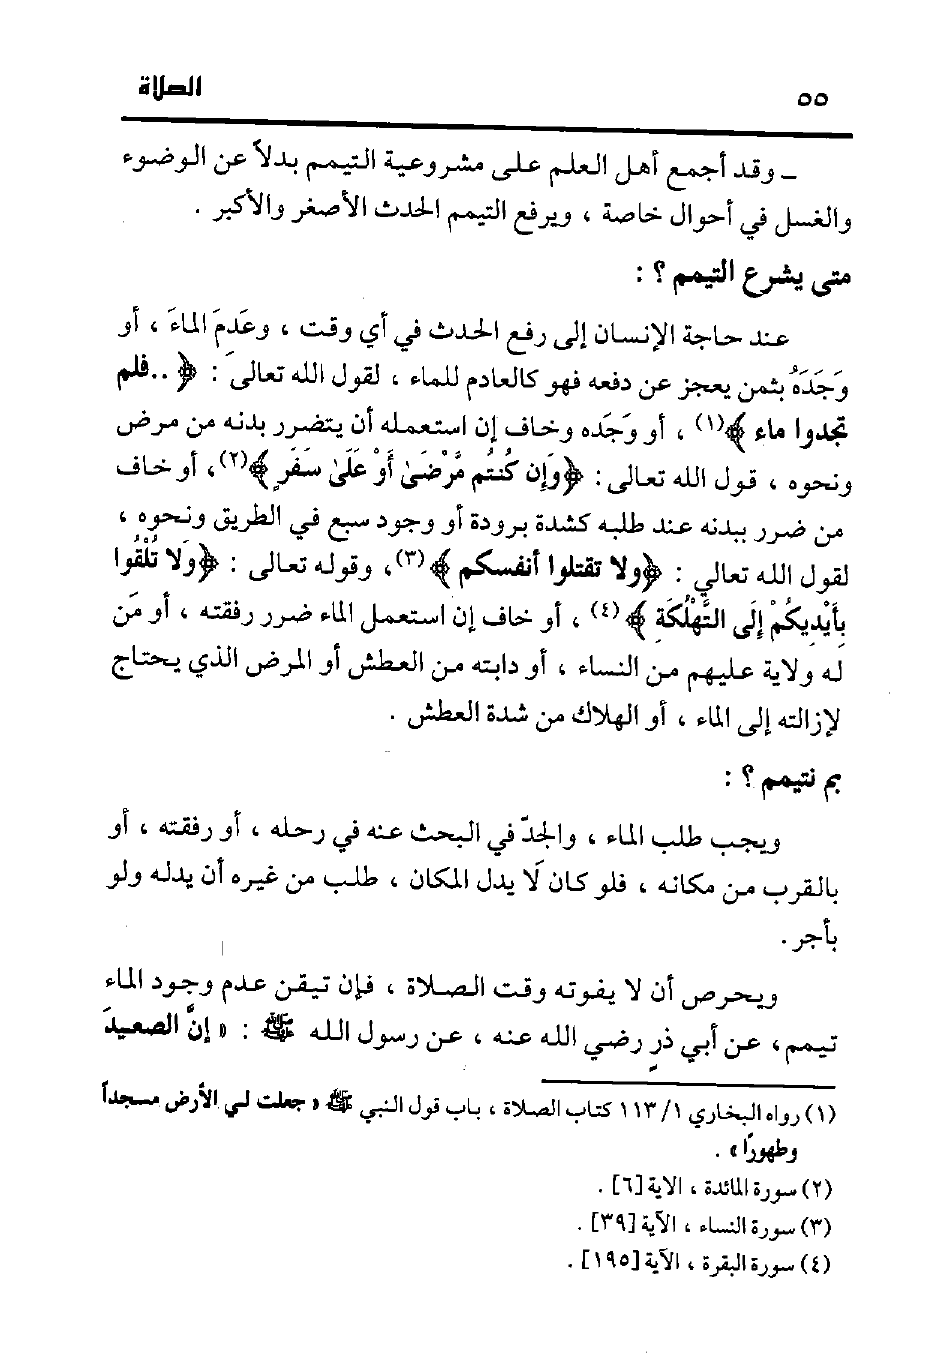 ٥٥ الصلاة
ـ وقد أجمع أهل العلم على مشروعية التيمم بدلاً عن الوضوء
والغسل في أحوال خاصة ، ويرفع التيمم الحدث الأصغر والأكبر .
متى يشرع التيمم ؟ :
عند حاجة الإنسان إلى رفع الحدث في أي وقت ، وعَدِمَ الماءَ ، أو
وَجَدَهُ بثمن يعجز عن دفعه فهو كالعادم للماء ، لقول الله تعالى : ﴿ ..فلم
تجدوا ماء ﴾(١) ، أو وجَده وخاف إن استعمله أن يتضرر بدنه من مرض
ونحوه ، قول الله تعالى : ﴿وَإِن كُنتُم مَّرْضَىٰ أَوْ عَلَىٰ سَفَرٍ ﴾(٢)، أو خاف
من ضرر ببدنه عند طلبه كشدة برودة أو وجود سبع في الطريق ونحوه ،
لقول الله تعالي : ﴿ولا تقتلوا أنفسكم ﴾(٣)، وقوله تعالى : ﴿وَلَا تُلْقُوا
بِأَيْدِيكُمْ إِلَى التَّهْلُكَةِ ﴾(٤) ، أو خاف إن استعمل الماء ضرر رفقته ، أو مَن
له ولاية عليهم من النساء ، أو دابته من العطش أو المرض الذي يحتاج
لإزالته إلى الماء ، أو الهلاك من شدة العطش .
بم نتيمم ؟ :
ويجب طلب الماء ، والجدّ في البحث عنه في رحله ، أو رفقته ، أو
بالقرب من مكانه ، فلو كان لَا يدل المكان ، طلب من غيره أن يدله ولو
بأجر .
ويحرص أن لا يفوته وقت الصلاة ، فإن تيقن عدم وجود الماء
تيمم، عن أبي ذرٍ رضي الله عنه ، عن رسول الله ﷺ : « إنَّ الصعيدَ
(١) رواه البخاري ١١٣/١ كتاب الصلاة ، باب قول النبي ﷺ « جعلت لي الأرض مسجداً
وطهورًا » .
(٢) سورة المائدة ، الاية [٦] .
(٣) سورة النساء ، الآية [٣٩] .
(٤) سورة البقرة ، الآية [١٩٥] .